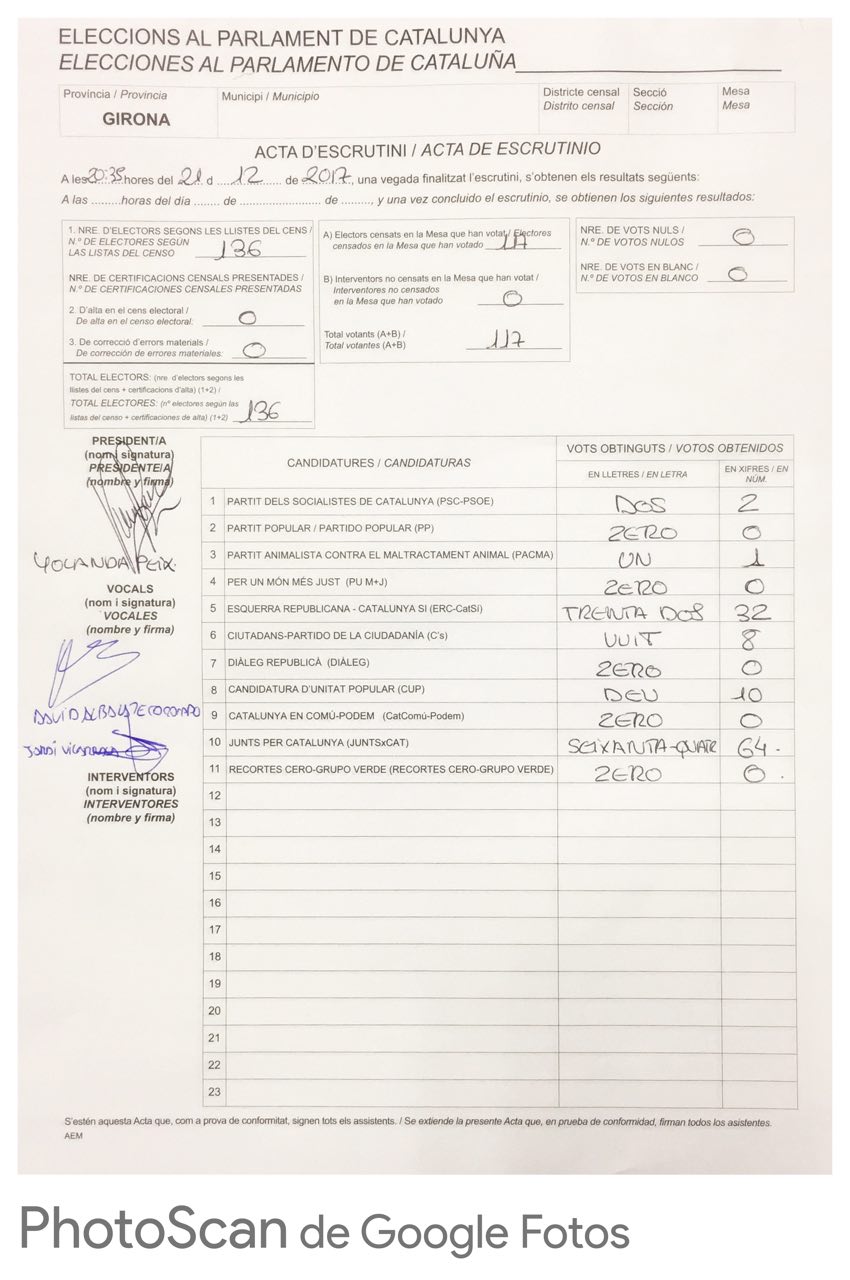 ELECCIONS AL PARLAMENT DE CATALUNYA
ELECCIONES AL PARLAMENTO DE CATALUÑA
Província / Provincia
GIRONA
Municipi / Municipio
Districte censal
Distrito censal
Secció
Sección
Mesa
Mesa
ACTA D'ESCRUTINI / ACTA DE ESCRUTINIO
A les 20:35 hores del 21 d ... 12 ... de 2017, una vegada finalitzat l'escrutini, s'obtenen els resultats següents:
A las ......... horas del día ....... de ........................ de ........., y una vez concluido el escrutinio, se obtienen los siguientes resultados:
1. NRE. D'ELECTORS SEGONS LES LLISTES DEL CENS /
N.º DE ELECTORES SEGÚN
LAS LISTAS DEL CENSO 136
NRE. DE CERTIFICACIONS CENSALS PRESENTADES /
N.º DE CERTIFICACIONES CENSALES PRESENTADAS
2. D'alta en el cens electoral /
De alta en el censo electoral: 0
3. De correcció d'errors materials /
De corrección de errores materiales: 0
TOTAL ELECTORS: (nre. d'electors segons les
llistes del cens + certificacions d'alta) (1+2) /
TOTAL ELECTORES: (nº electores según las
listas del censo + certificaciones de alta) (1+2) 136
A) Electors censats en la Mesa que han votat / Electores
censados en la Mesa que han votado
B) Interventors no censats en la Mesa que han votat /
Interventores no censados
en la Mesa que han votado 0
Total votants (A+B) /
Total votantes (A+B) 117
NRE. DE VOTS NULS /
N.º DE VOTOS NULOS 0
NRE. DE VOTS EN BLANC /
N.º DE VOTOS EN BLANCO 0
PRESIDENT/A
(nom i signatura)
PRESIDENTE/A
(nombre y firma)
YOLANDA PEIX
VOCALS
(nom i signatura)
VOCALES
(nombre y firma)
DAVID
JORDI
INTERVENTORS
(nom i signatura)
INTERVENTORES
(nombre y firma)
CANDIDATURES / CANDIDATURAS
VOTS OBTINGUTS / VOTOS OBTENIDOS
EN LLETRES / EN LETRA
EN XIFRES / EN
NÚM.
1 PARTIT DELS SOCIALISTES DE CATALUNYA (PSC-PSOE) DOS 2
2 PARTIT POPULAR / PARTIDO POPULAR (PP) ZERO 0
3 PARTIT ANIMALISTA CONTRA EL MALTRACTAMENT ANIMAL (PACMA) UN 1
4 PER UN MÓN MÉS JUST (PU M+J) ZERO 0
5 ESQUERRA REPUBLICANA - CATALUNYA SI (ERC-CatSí) TRENTA DOS 32
6 CIUTADANS-PARTIDO DE LA CIUDADANÍA (C's) VUIT 8
7 DIÀLEG REPUBLICÀ (DIÀLEG) ZERO 0
8 CANDIDATURA D'UNITAT POPULAR (CUP) DEU 10
9 CATALUNYA EN COMÚ-PODEM (CatComú-Podem) ZERO 0
10 JUNTS PER CATALUNYA (JUNTSxCAT) SEIXANTA-QUATR 64
11 RECORTES CERO-GRUPO VERDE (RECORTES CERO-GRUPO VERDE) ZERO 0
12
13
14
15
16
17
18
19
20
21
22
23
S'estén aquesta Acta que, com a prova de conformitat, signen tots els assistents. / Se extiende la presente Acta que, en prueba de conformidad, firman todos los asistentes.
AEM
PhotoScan de Google Fotos